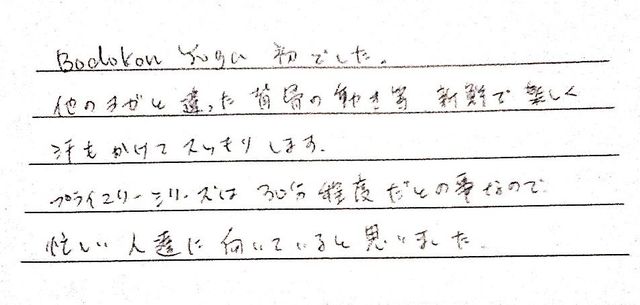 Budokon Yoga 初でした。
他のヨガと違った背骨の動き等 新鮮で楽しく
汗もかけてスッキリします。
プライマリーシリーズは 30分程度だとの事なので
忙しい人達に向いていると思いました。